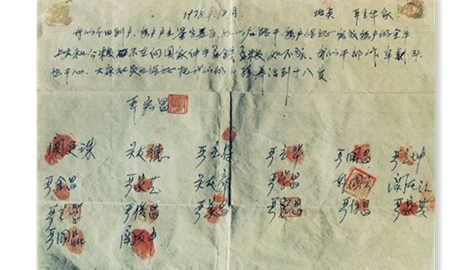 1978年12月 地点 严立华家
我们分田到户，每户户主签字盖章，如以后能干，每户保证完成每户的全年
上交和公粮，不在向国家伸手要钱要粮，如不成，我们干部作牢刹
头也干心，大家社员也保证把我们的小孩养活到十八岁
严宏昌
关廷珠 关友德 严立符 严立华 严国昌 严立坤
严金昌 严家芝 关友章 严学昌 韩国云 关友江
严立学 严俊昌 严美昌 严付昌
严国品